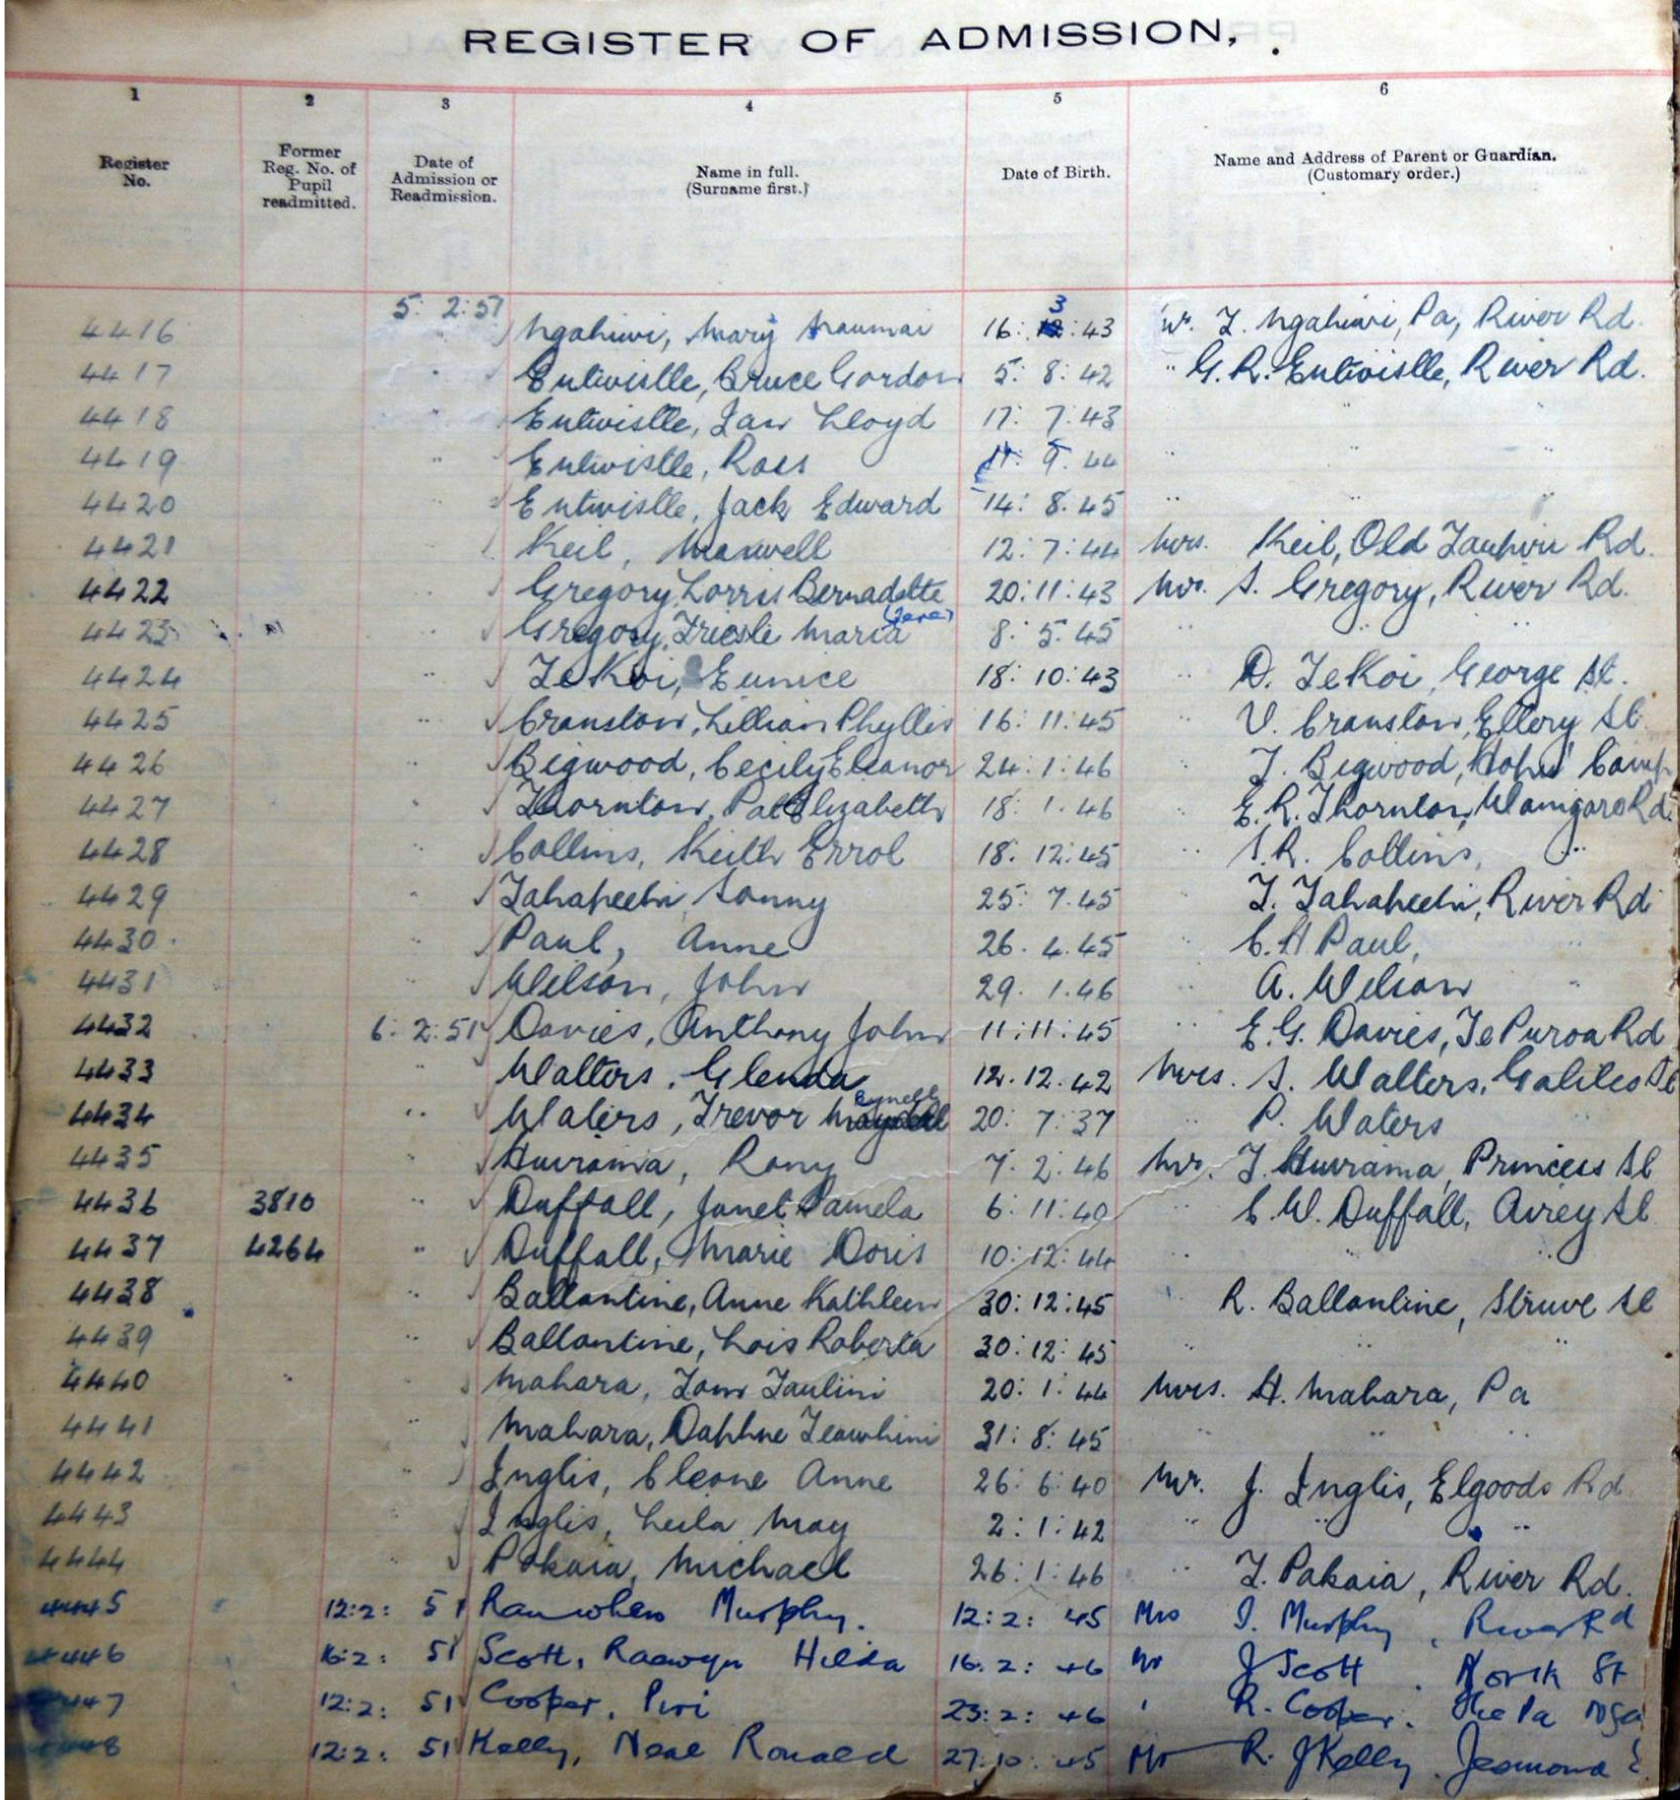 REGISTER OF ADMISSION.
1 2 3 4 5 6
Register No. Former Reg. No. of Pupil readmitted. Date of Admission or Readmission. Name in full. (Surname first.) Date of Birth. Name and Address of Parent or Guardian. (Customary order.)
4416 5: 2:51 Ngahiwi, Mary 16: 3 :43 Mr. T. Ngahiwi, Pa, River Rd.
4417 " Entwistle, Bruce Gordon 5: 8: 42 " G. R. Entwistle, River Rd.
4418 " Entwistle, Ian Lloyd 17: 7:43 " "
4419 " Entwistle, Ross 9: 44 " " "
4420 " Entwistle, Jack Edward 14: 8. 45 " " "
4421 " Keil, Maxwell 12: 7:44 Mrs. Keil, Old Taupiri Rd.
4422 " Gregory, Bernadette 20:11:43 Mr. S. Gregory, River Rd.
4423 " Gregory, Maria 8: 5. 45 " " "
4424 " TeKoi, Eunice 18: 10:43 " D. TeKoi, George St.
4425 " Cranston, Lillian Phyllis 16: 11:45 " V. Cranston, Ellery St
4426 " Bigwood, Cecily Eleanor 24: 1:46 " J. Bigwood, Camp
4427 " Thornton, Pat Elizabeth 18: 1. 46 " E. R. Thornton, Rd.
4428 " Collins, Keith Errol 18. 12:45 " Collins, "
4429 " Sonny 25: 7.45 T. River Rd
4430 " Paul, Anne 26. 4.45 " C. H Paul, "
4431 " Wilson, John 29. 1.46 " A. Wilson "
4432 6: 2:51 Davies, Anthony John 11:11:45 " E. G. Davies, Te Puroa Rd
4433 " Walters, Glenda 12.12.42 Mrs. S. Walters, Galileo St
4434 " Waters, Trevor 20: 7:37 " P. Waters
4435 " Hurrama, Rony 7. 2:46 Mr. T. Hurrama, Princess St
4436 3810 " Duffall, Janet Pamela 6: 11:40 " C. W. Duffall, Airey St
4437 4264 " Duffall, Marie Doris 10:12:44 " " "
4438 " Ballantine, Anne Kathleen 30:12:45 " R. Ballantine, Struve St
4439 " Ballantine, Lois Roberta 30:12:45 " " "
4440 " Mahara, Tom Taulini 20: 1:44 Mrs. H. Mahara, Pa
4441 " Mahara, Daphne 31: 8: 45 " " "
4442 " Inglis, Cleone Anne 26: 6:40 Mr. J. Inglis, Elgoods Rd
4443 " Inglis, Leila May 2: 1:42 " " "
4444 " Pokaia, Michael 26: 1:46 " T. Pokaia, River Rd.
4445 12:2: 51 Murphy. 12:2: 45 Mrs I. Murphy, River Rd
4446 16:2: 51 Scott, Raewyn Hilda 16:2: 46 Mr J Scott. North St
447 12:2: 51 Cooper, Piri 23:2: 46 " R. Cooper. The Pa
48 12:2: 51 Kelly, Neal Ronald 27:10:45 Mr R. J Kelly. Jesmond